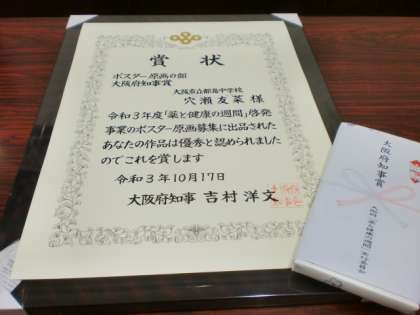 賞状
ポスター原画の部
大阪府知事賞
大阪市立都島中学校
穴瀬友菜 様
令和3年度「薬と健康の週間」啓発
事業のポスター原画募集に出品された
あなたの作品は優秀と認められました
のでこれを賞します
令和3年10月17日
大阪府知事 吉村洋文
大阪府知事賞